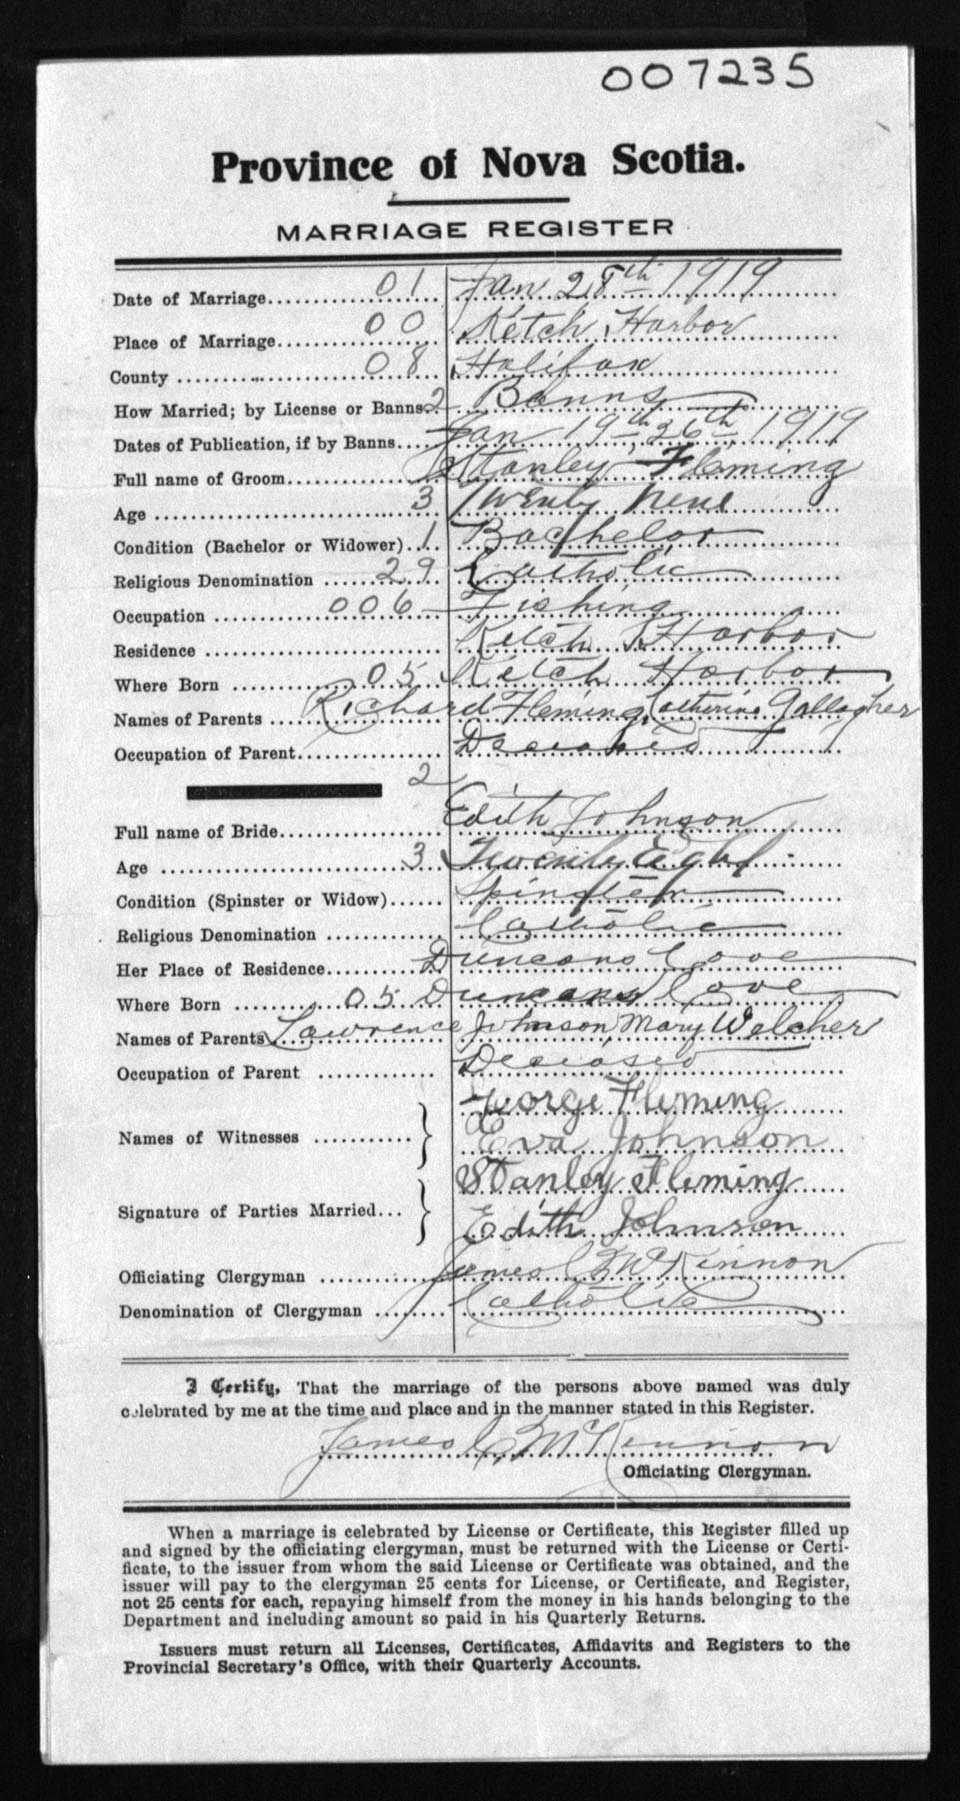 007235
Province of Nova Scotia.
MARRIAGE REGISTER
Date of Marriage 01 Jan 28th 1919
Place of Marriage 00 Ketch Harbor
County 08 Halifax
How Married; by License or Banns 2 Banns
Dates of Publication, if by Banns Jan 19th, 26th 1919
Full name of Groom Stanley Fleming
Age 3 Twenty Nine
Condition (Bachelor or Widower) 1 Bachelor
Religious Denomination 29 Catholic
Occupation 006 Fishing
Residence Ketch Harbor
Where Born 05 Ketch Harbor
Names of Parents Richard Fleming, Catherine Gallagher
Occupation of Parent Deceased
2
Full name of Bride Edith Johnson
Age 3 Twenty Eight
Condition (Spinster or Widow) Spinster
Religious Denomination Catholic
Her Place of Residence Duncans Cove
Where Born 05 Duncans Cove
Names of Parents Lawrence Johnson Mary Welcher
Occupation of Parent Deceased
Names of Witnesses George Fleming
Eva Johnson
Signature of Parties Married Stanley Fleming
Edith Johnson
Officiating Clergyman James C McKinnon
Denomination of Clergyman Catholic
I Certify, That the marriage of the persons above named was duly
celebrated by me at the time and place and in the manner stated in this Register.
James C McKinnon
Officiating Clergyman.
When a marriage is celebrated by License or Certificate, this Register filled up
and signed by the officiating clergyman, must be returned with the License or Certi-
ficate, to the issuer from whom the said License or Certificate was obtained, and the
issuer will pay to the clergyman 25 cents for License, or Certificate, and Register,
not 25 cents for each, repaying himself from the money in his hands belonging to the
Department and including amount so paid in his Quarterly Returns.
Issuers must return all Licenses, Certificates, Affidavits and Registers to the
Provincial Secretary's Office, with their Quarterly Accounts.